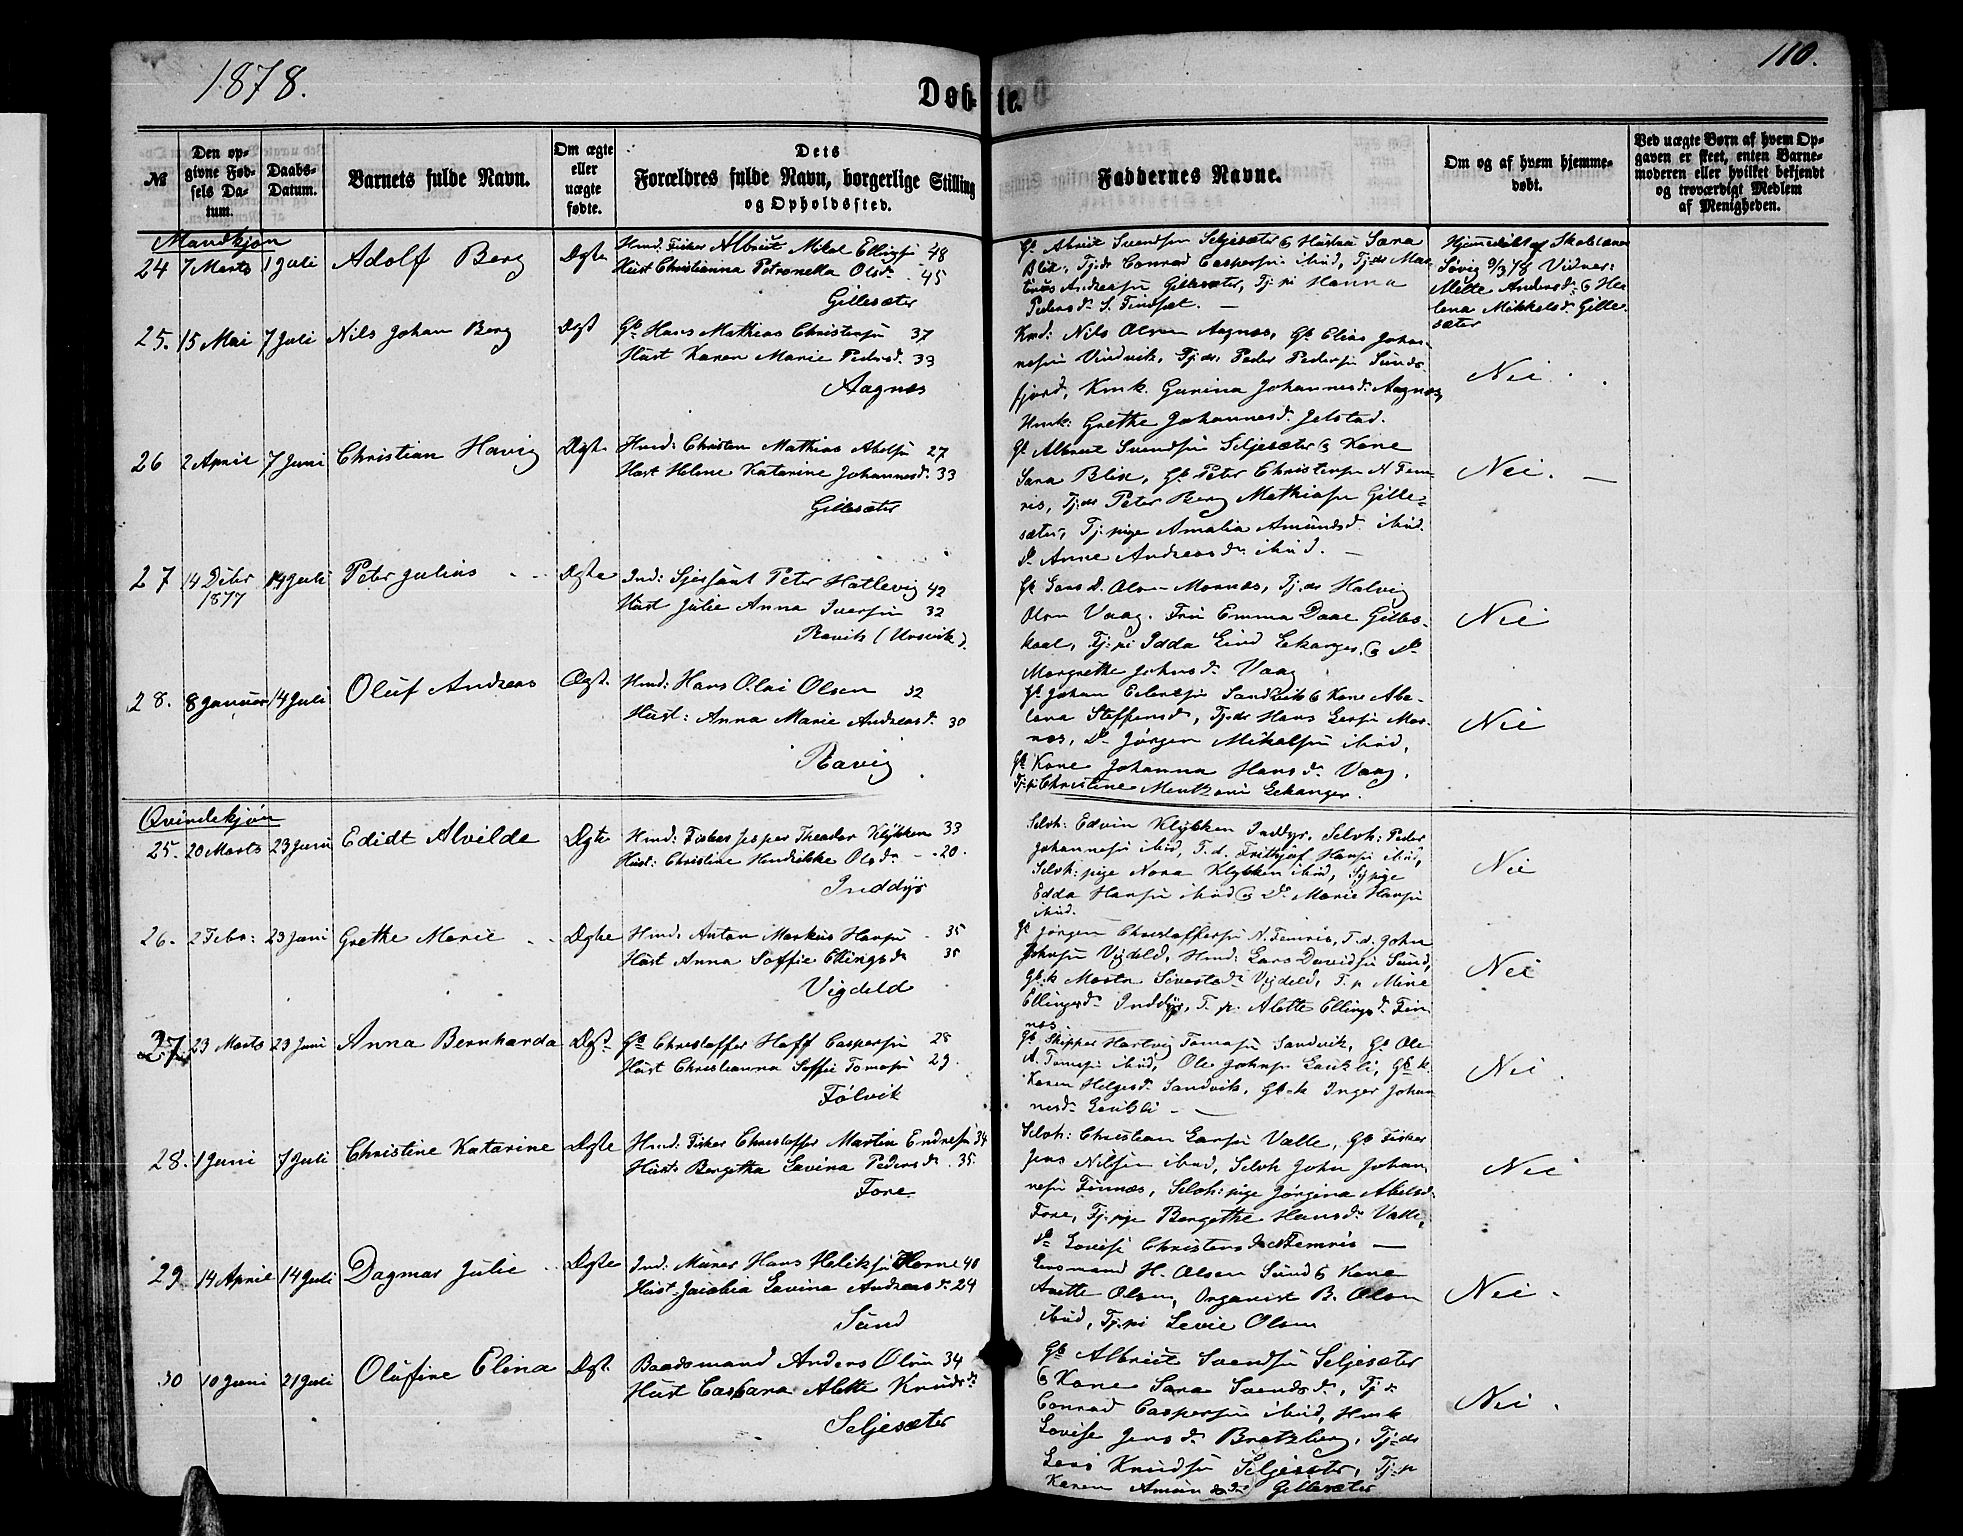 1878.
Døb-
te.
110.
№
Den op-
givne Fød-
sels Da-
tum.
Daabs-
Datum.
Barnets fulde Navn.
Om ægte
eller
uægte
fødte.
Dets
Forældres fulde Navn, borgerlige Stilling
og Opholdssted.
Faddernes Navne.
Om og af hvem hjemme-
døbt.
Ved uægte Børn af hvem Op-
gaven er skeet, enten Barne-
moderen eller hvilket bekjendt
og troværdigt Medlem
af Menigheden.
Mandkjøn
24 7 Marts 1 Juli Adolf Berg Ægte
Hmd. Fisker Albrikt Mikal Ellingsn 48
Hust Christianna Petronella Olsdr 45
Gillesæter
Gb. Albrikt Svendsen Seljesæter & Hustru Sara
Blix, Tj:dr Conrad Caspersen ibid, Tj:dr Mar-
tinus Andreasen Gillesæter, Tj: pi Hanna
Pedersdr S. Finset. —
Hjemmedøbt af Skolelærer
Søvig 9/3 78 Vidner:
Mette Andersdr & He-
lena Mikkelsdr Gille-
sæter
25. 15 Mai 7 Juli Nils Johan Berg Ægt
Gb Hans Mathias Christensn 37
Hust Karen Marie Pedersdr. 33
Aagnæs
Kmd: Nils Olsen Aagnæs, Gb. Elias Johan-
nesen Vindvik, Tj:dr Peder Pedersen Sunds-
fjord, Kmk. Gurina Johannesdr Aagnæs,
Hmk: Grethe Johannesdr Jelstad.
Nei.
26 2 April 7 Juni Christian Havig Ægte
Hmd: Christen Mathias Abelsn 27
Hust Helene Katarine Johannesdr. 33
Gillesæter
Gb Albrikt Svendsen Seljesæter & Kone
Sara Blix, Gb Peter Christensen N. Fem-
ris, Tj:dr Peter Berg Mathiasen Gille-
sæter, Tj: pige Amalia Amundsdr ibid.
Do Anne Andreasdr ibid. —
Nei. —
27 14 Decbr 14 Juli Peter Julius Ægte
1877
Ind: Sjersant Peter Hatlevig 42
Hust Julie Anna Iversen 32
Ravik (Ursvik)
Gb Lars d. Olsen Mornæs, Tj:dr Halvig
Olsen Vaag. Fru Emma Daae Gilles-
kaal, Tj: pi Idda Lind Ekanger, & Do
Margrethe Johnsdr Vaag
Nei
28. 8 Januar 14 Juli Oluf Andreas Ægt.
Hmd: Hans Olai Olsen 32
Hust: Anna Marie Andreasdr. 30
Ravig
Gb Johan Eilertsen Sandvik & Kone Abe-
lona Steffensdr, Tj:dr Hans Larsen Mor-
næs, Do Jørgen Mikalsen ibid,
Gb Kone Johanna Hansdr Vaag,
Tj:pi Christine Mentzoni Ekanger.
Nei
Qvindekjøn
25. 20 Marts 23 Juni Edidt Alvilde Ægte
Hmd: Fisker Jesper Theodor Klykken 33
Hust: Christine Hendrikke Olsdr — 20.
Inddyr
Selvh: Edvin Klykken Inddyr, Selvh: Peder
Johannesen ibid, T.d. Frithjof Hansen ibid,
Selvh: pige Nora Klykken ibid, Sypige
Edda Hansen ibid & Do Marie Hansen
ibid.
Nei
26. 2 Febr: 23 Juni Grethe Marie Ægte
Hmd. Anton Markus Hansen 35
Hust Anna Soffie Ellingsdr 35
Vigdeld
Gb Jørgen Christoffersen N. Femris, T.d. John
Johnsen Vigdeld, Hmd: Lars Davidsen Sund,
Gb.k Marta Sivertsdr Vigdeld, T.p Mine
Ellingsdr Inddyr, T. p: Alette Ellingsdr Fin-
næs.
Nei
27 23 Marts 23 Juni Anna Bernharda Ægt
Gb Christoffer Hoff Caspersen 28
Hust Christianna Soffie Tomasn 29.
Følvik
Gb Skipper Hartvig Tomasen Sandvik, Gb Ole
A. Tomasen ibid, Ole Johnsen
Karen Helgesdr Sandvik, Gb.k Inger Johan-
nesdr —
Nei.
28. 1 Juni 7 Juli Christine Katarine Ægte
Hmd: Fisker Christoffer Martin Endresen 34
Hust Bergitha Lavina Pedersdr 35
Fore
Selvh: Christian Larsen Valle, Gb Fisker
Jens Nilsen ibid, Selvh John Johan-
nesen Finnæs, Selvh: pige Jørgina Abelsdr
Fore, Tj: pige Bergethe Hansdr Valle,
Do Lovise Christensdr N. Femris —
Nei
29. 14 April 14 Juli Dagmar Julie Ægte
Ind: Murer Hans Heliksen Horne 40
Hust Jacobia Lavina Andreasdr. 24
Sund
Lensmand H. Olsen Sund & Kone
Anette Olsen, Organist B. Olsen
ibid, Tj: pi Levie Olsen
Nei.
30 10 Juni 21 Juli Olufine Elina Ægt.
Baadsmand Anders Olsen 34
Hust Casbara Alette Knudsdr
Seljesæter
Gb Albrikt Svendsen Seljesæter
& Kone Sara Svendsdr, Tj dr
Conrad Caspersen ibid, Hmk
Lovise Jensdr Bratzberg, Tj:dr
Lars Knudsen Seljesæter, Tj:p
Karen Amundsdr Gillesæter
Nei.